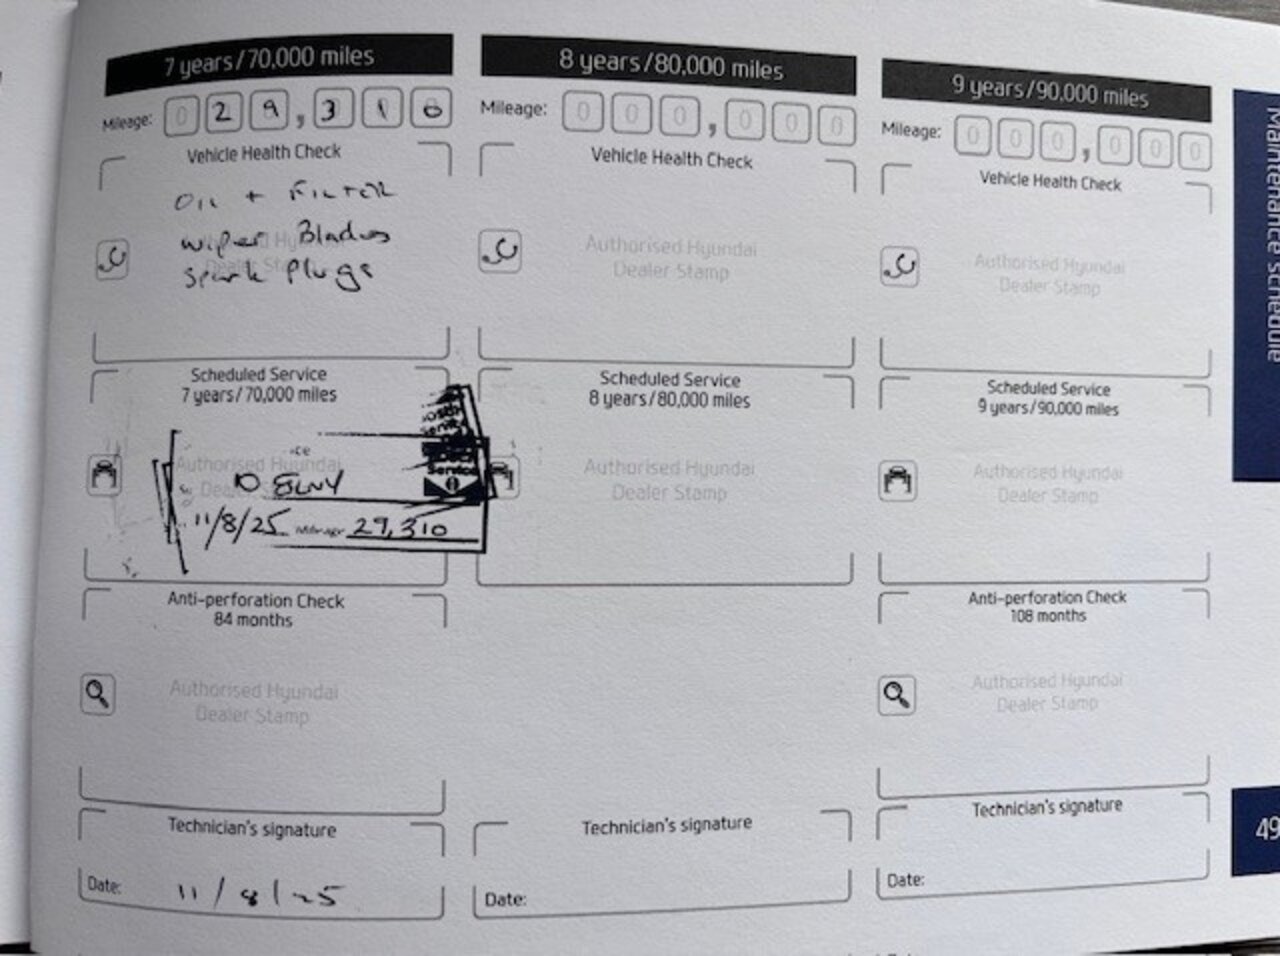 7 years/70,000 miles
Mileage: 0 2 9 , 3 1 0
Vehicle Health Check
OIL + FILTER
Wiper Blades
Spark Plugs
Scheduled Service
7 years/70,000 miles
Authorised Hyundai
Service
Service
11/8/25 Mileage 29,310
Anti-perforation Check
84 months
Authorised Hyundai
Dealer Stamp
Technician's signature
Date: 11/8/25
8 years/80,000 miles
Mileage: 0 0 0 , 0 0 0
Vehicle Health Check
Authorised Hyundai
Dealer Stamp
Scheduled Service
8 years/80,000 miles
Authorised Hyundai
Dealer Stamp
Technician's signature
Date:
9 years/90,000 miles
Mileage: 0 0 0 , 0 0 0
Vehicle Health Check
Authorised Hyundai
Dealer Stamp
Scheduled Service
9 years/90,000 miles
Authorised Hyundai
Dealer Stamp
Anti-perforation Check
108 months
Authorised Hyundai
Dealer Stamp
Technician's signature
Date:
Maintenance schedule
49